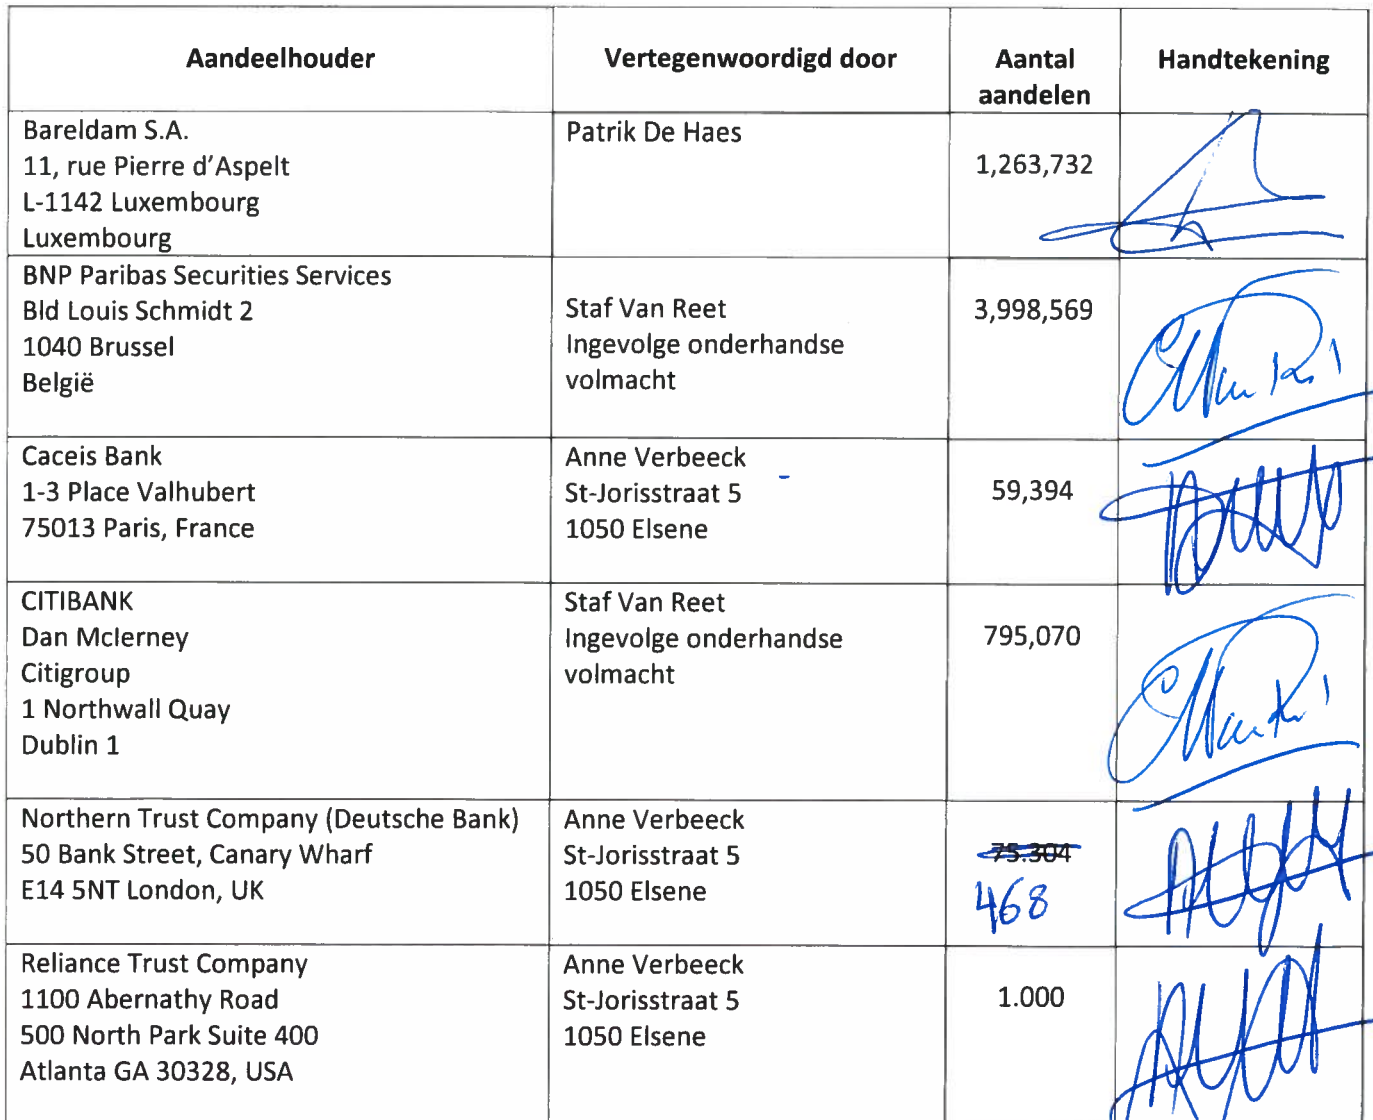 Aandeelhouder Vertegenwoordigd door Aantal aandelen Handtekening
Bareldam S.A.
11, rue Pierre d'Aspelt
L-1142 Luxembourg
Luxembourg
Patrik De Haes
1,263,732
BNP Paribas Securities Services
Bld Louis Schmidt 2
1040 Brussel
België
Staf Van Reet
Ingevolge onderhandse
volmacht
3,998,569
Caceis Bank
1-3 Place Valhubert
75013 Paris, France
Anne Verbeeck
St-Jorisstraat 5
1050 Elsene
59,394
CITIBANK
Dan McIerney
Citigroup
1 Northwall Quay
Dublin 1
Staf Van Reet
Ingevolge onderhandse
volmacht
795,070
Northern Trust Company (Deutsche Bank)
50 Bank Street, Canary Wharf
E14 5NT London, UK
Anne Verbeeck
St-Jorisstraat 5
1050 Elsene
75.304
468
Reliance Trust Company
1100 Abernathy Road
500 North Park Suite 400
Atlanta GA 30328, USA
Anne Verbeeck
St-Jorisstraat 5
1050 Elsene
1.000